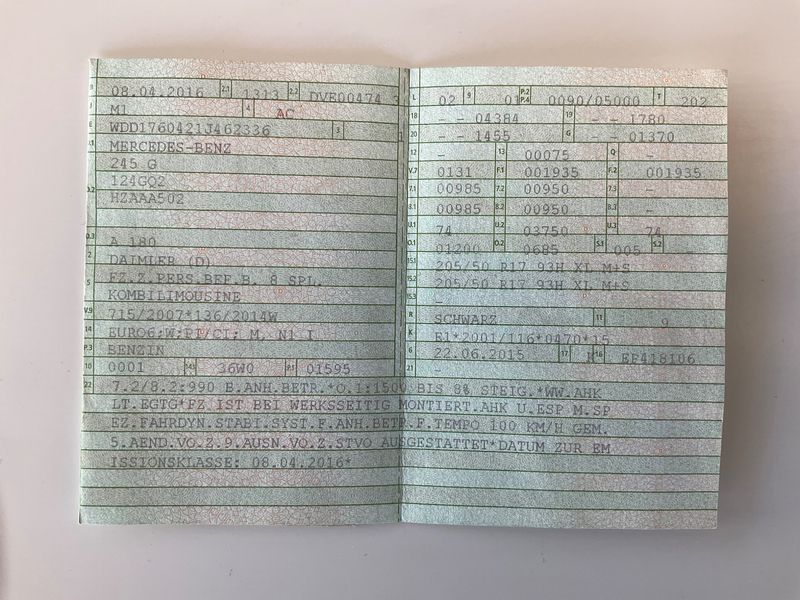 B 08.04.2016 2.1 1313 2.2 DVE00474 3
J M1 4 AC
E WDD1760421J462336 3 1
D.1 MERCEDES-BENZ
245 G
D.2 124GQ2
HZAAA502
D.3 A 180
2 DAIMLER (D)
5 FZ.Z.PERS.BEF.B. 8 SPL.
KOMBILIMOUSINE
V.9 715/2007*136/2014W
14 EURO6;W;PI/CI; M, N1 I
P.3 BENZIN
10 0001 14.1 36W0 P.1 01595
L 02 9 01 P.2 P.4 0090/05000 T 202
18 - - 04384 19 - - 1780
20 - - 1455 G - - 01370
12 - 13 00075 Q -
V.7 0131 F.1 001935 F.2 001935
7.1 00985 7.2 00950 7.3 -
8.1 00985 8.2 00950 8.3 -
U.1 74 U.2 03750 U.3 74
O.1 01200 O.2 0685 S.1 005 S.2 -
15.1 205/50 R17 93H XL M+S
15.2 205/50 R17 93H XL M+S
15.3 -
R SCHWARZ 11 9
K E1*2001/116*0470*15
6 22.06.2015 17 K 16 EF418106
21 -
22 7.2/8.2:990 B.ANH.BETR.*O.1:1500 BIS 8% STEIG.*WW.AHK
LT.EGTG*FZ IST BEI WERKSSEITIG MONTIERT.AHK U.ESP M.SP
EZ.FAHRDYN.STABI.SYST.F.ANH.BETR.F.TEMPO 100 KM/H GEM.
5.AEND.VO.Z.9.AUSN.VO.Z.STVO AUSGESTATTET*DATUM ZUR EM
ISSIONSKLASSE: 08.04.2016*